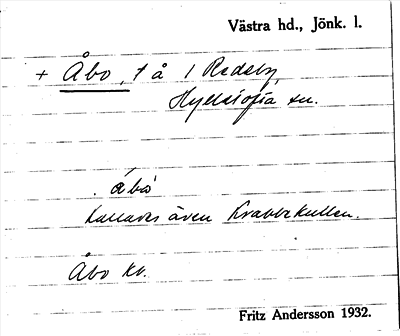 Västra hd., Jönk. l.
+ Åbo, t å / Redeby,
sn.
åbo
kallades även Krabbekullen.
Åbo kv.
Fritz Andersson 1932.